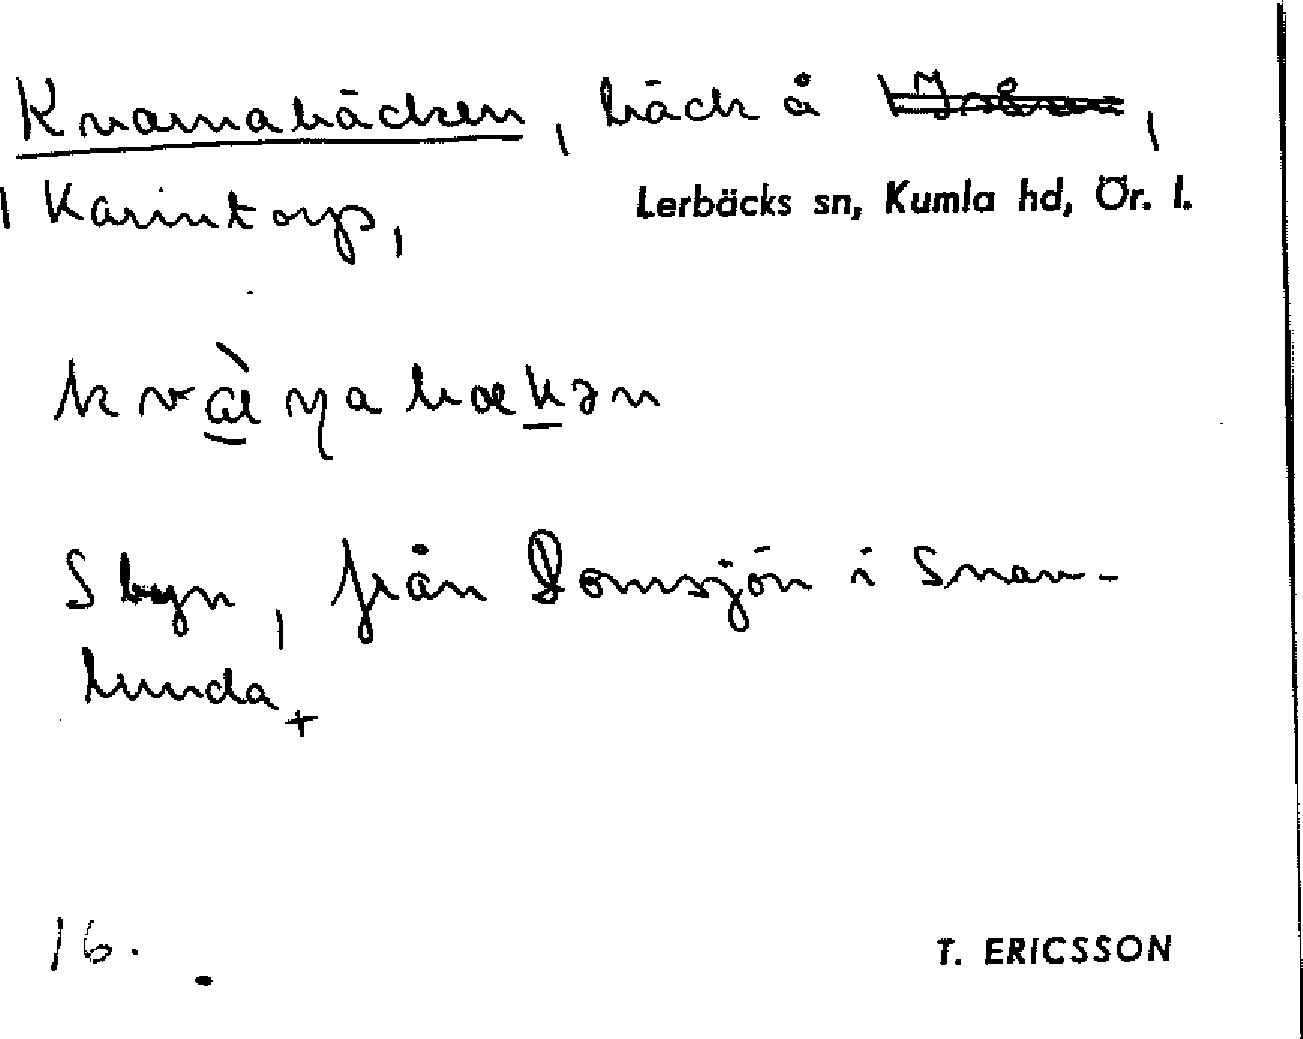 Kvarnabäcken, bäck å
Karintorp,
Lerbäcks sn, Kumla hd, Ör. l.
S byn, från Domsjön i Snav-
lunda
16.
T. ERICSSON